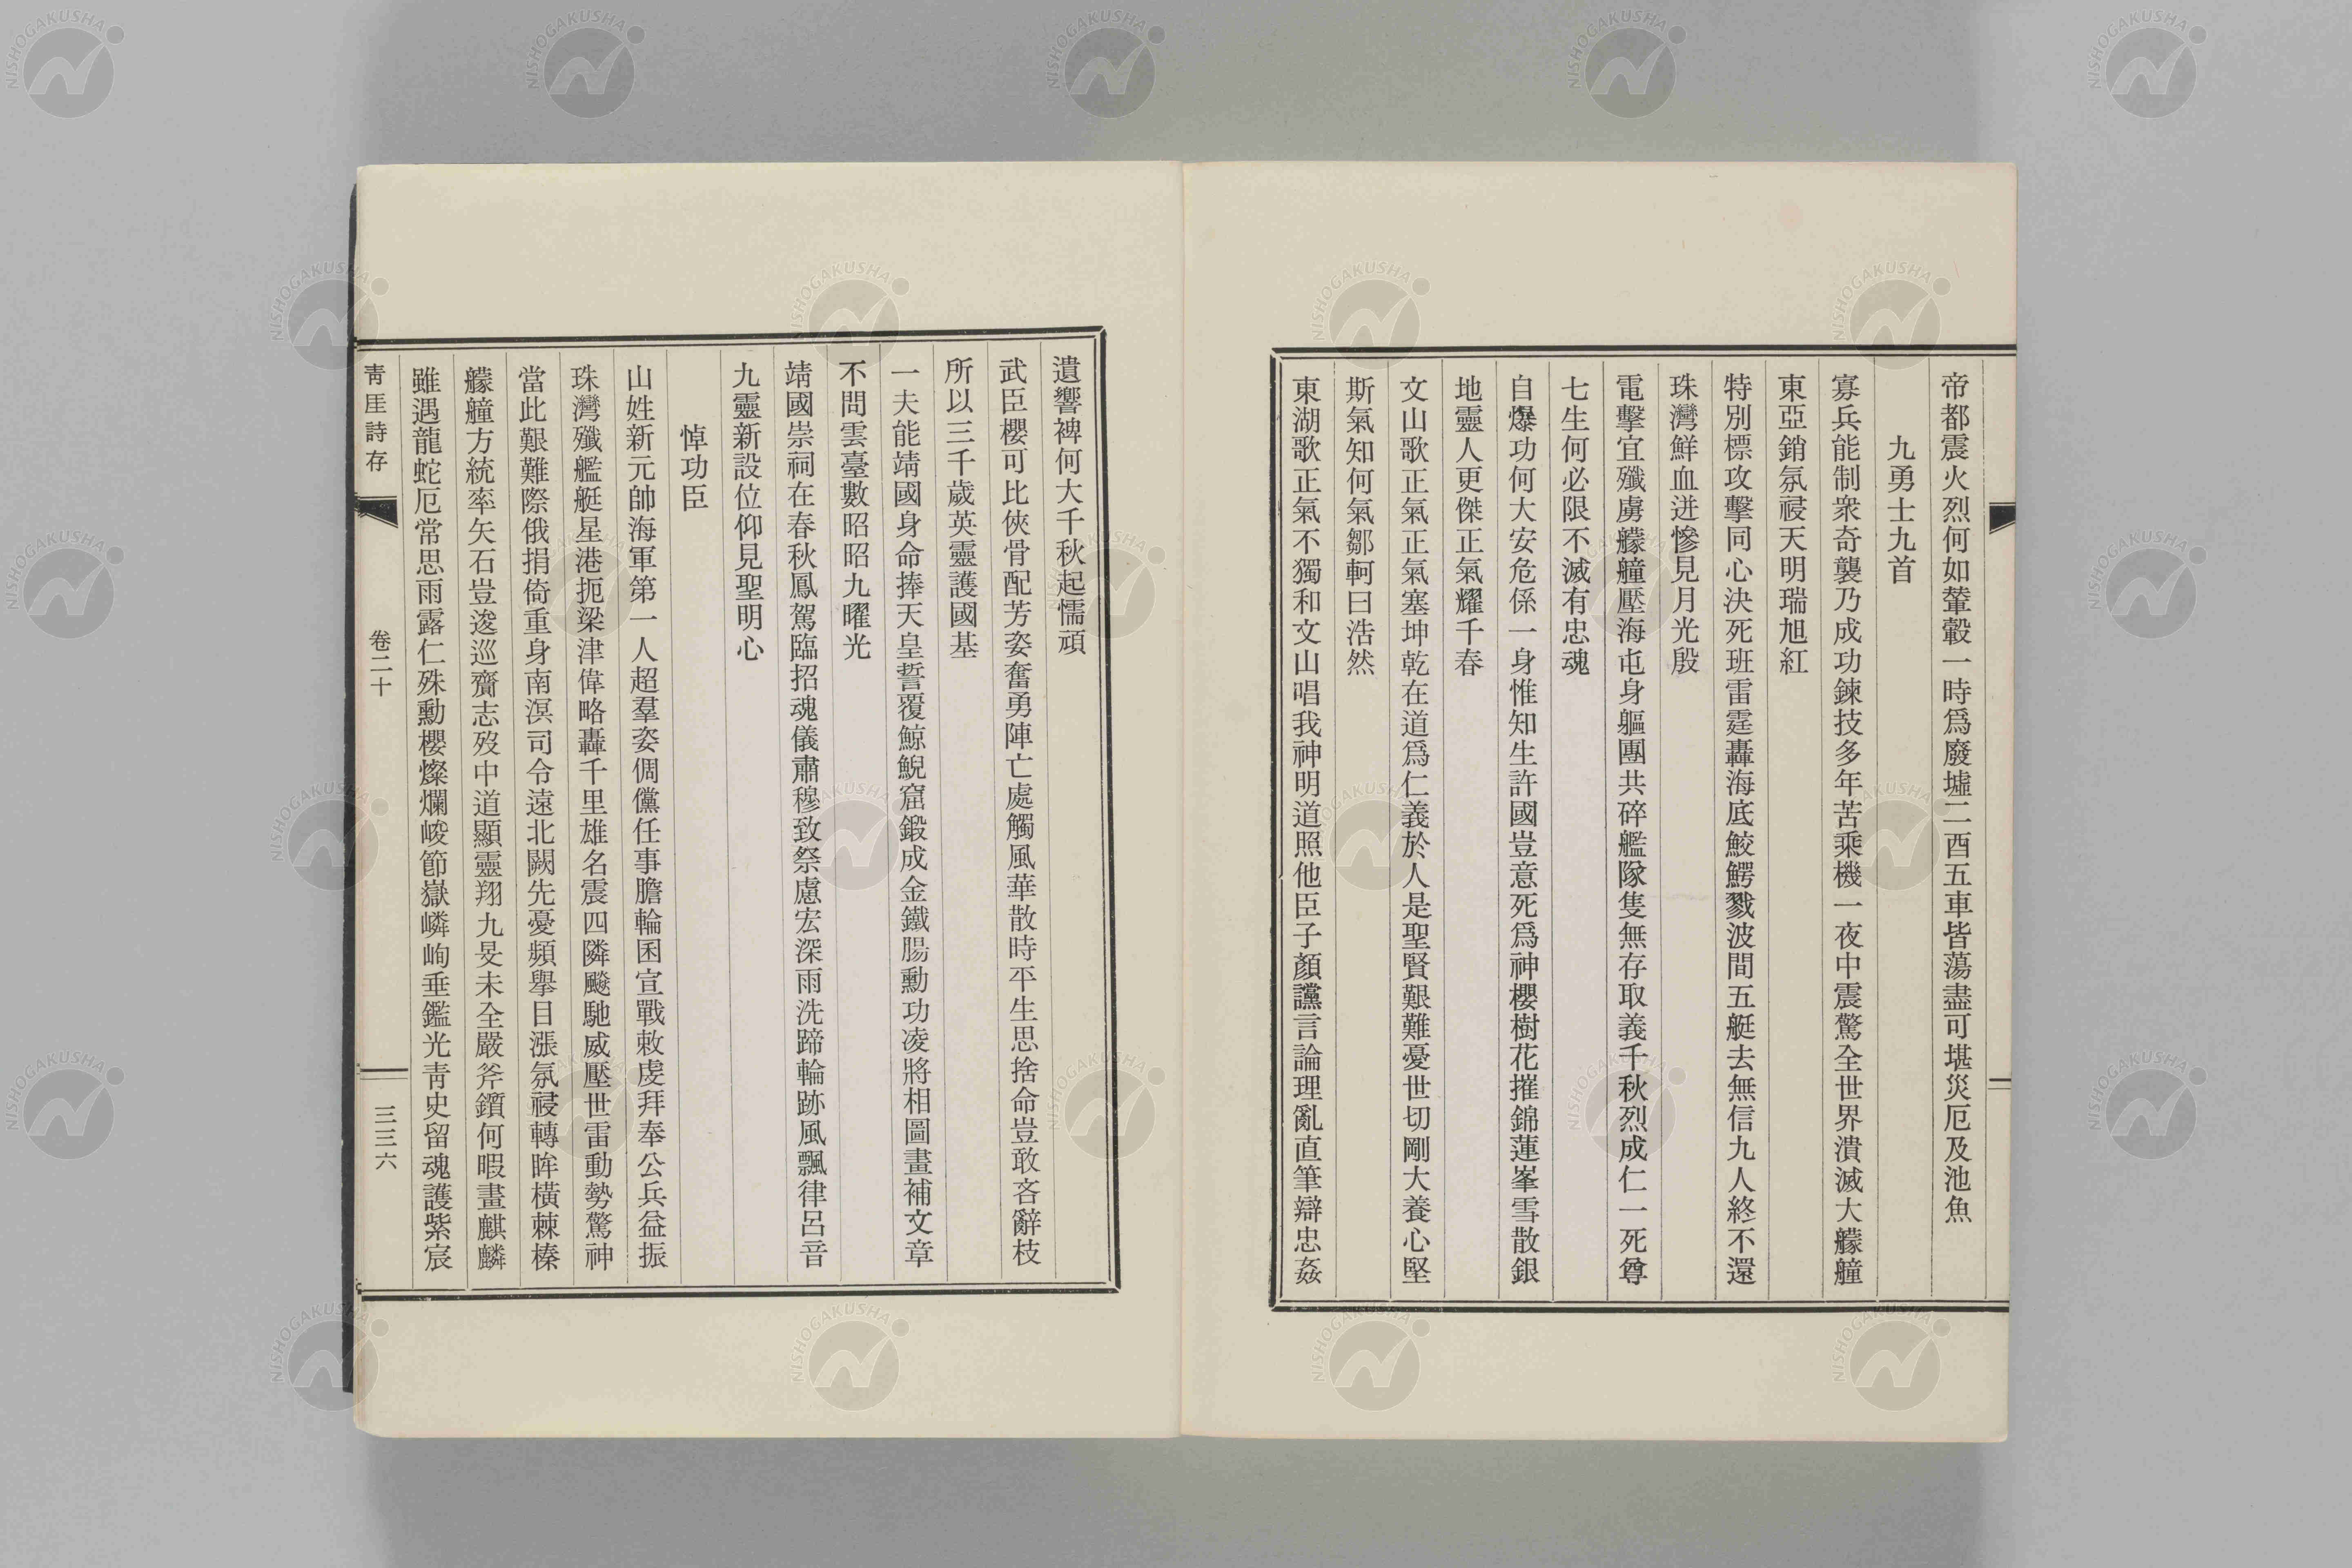 帝都震火烈何如輦轂一時爲廢墟二酉五車皆蕩盡可堪災厄及池魚
九勇士九首
寡兵能制衆奇襲乃成功鍊技多年苦乘機一夜中震驚全世界潰滅大艨艟
東亞銷氛祲天明瑞旭紅
特別標攻擊同心決死班雷霆轟海底鮫鰐戮波間五艇去無信九人終不還
珠灣鮮血迸慘見月光殷
電擊宜殲虜艨艟壓海屯身軀團共碎艦隊隻無存取義千秋烈成仁一死尊
七生何必限不滅有忠魂
自爆功何大安危係一身惟知生許國豈意死爲神櫻樹花摧錦蓮峯雪散銀
地靈人更傑正氣耀千春
文山歌正氣正氣塞坤乾在道爲仁義於人是聖賢艱難憂世切剛大養心堅
斯氣知何氣鄒軻曰浩然
東湖歌正氣不獨和文山唱我神明道照他臣子顏讜言論理亂直筆辯忠姦
遺響裨何大千秋起懦頑
武臣櫻可比俠骨配芳姿奮勇陣亡處觸風華散時平生思捨命豈敢吝辭枝
所以三千歲英靈護國基
一夫能靖國身命捧天皇誓覆鯨鯢窟鍛成金鐵腸勳功凌將相圖畫補文章
不問雲臺數昭昭九曜光
靖國崇祠在春秋鳳駕臨招魂儀肅穆致祭慮宏深雨洗蹄輪跡風飄律呂音
九靈新設位仰見聖明心
悼功臣
山姓新元帥海軍第一人超羣姿倜儻任事膽輪囷宣戰敕虔拜奉公兵益振
珠灣殲艦艇星港扼梁津偉略轟千里雄名震四隣颷馳威壓世雷動勢驚神
當此艱難際俄捐倚重身南溟司令遠北闕先憂頻擧目漲氛祲轉眸橫棘榛
艨艟方統率矢石豈逡巡齎志歿中道顯靈翔九旻未全嚴斧鑕何暇畫麒麟
雖遇龍蛇厄常思雨露仁殊勳櫻燦爛峻節嶽嶙峋垂鑑光靑史留魂護紫宸
靑厓詩存
卷二十
三三六
NISHOGAKUSHA